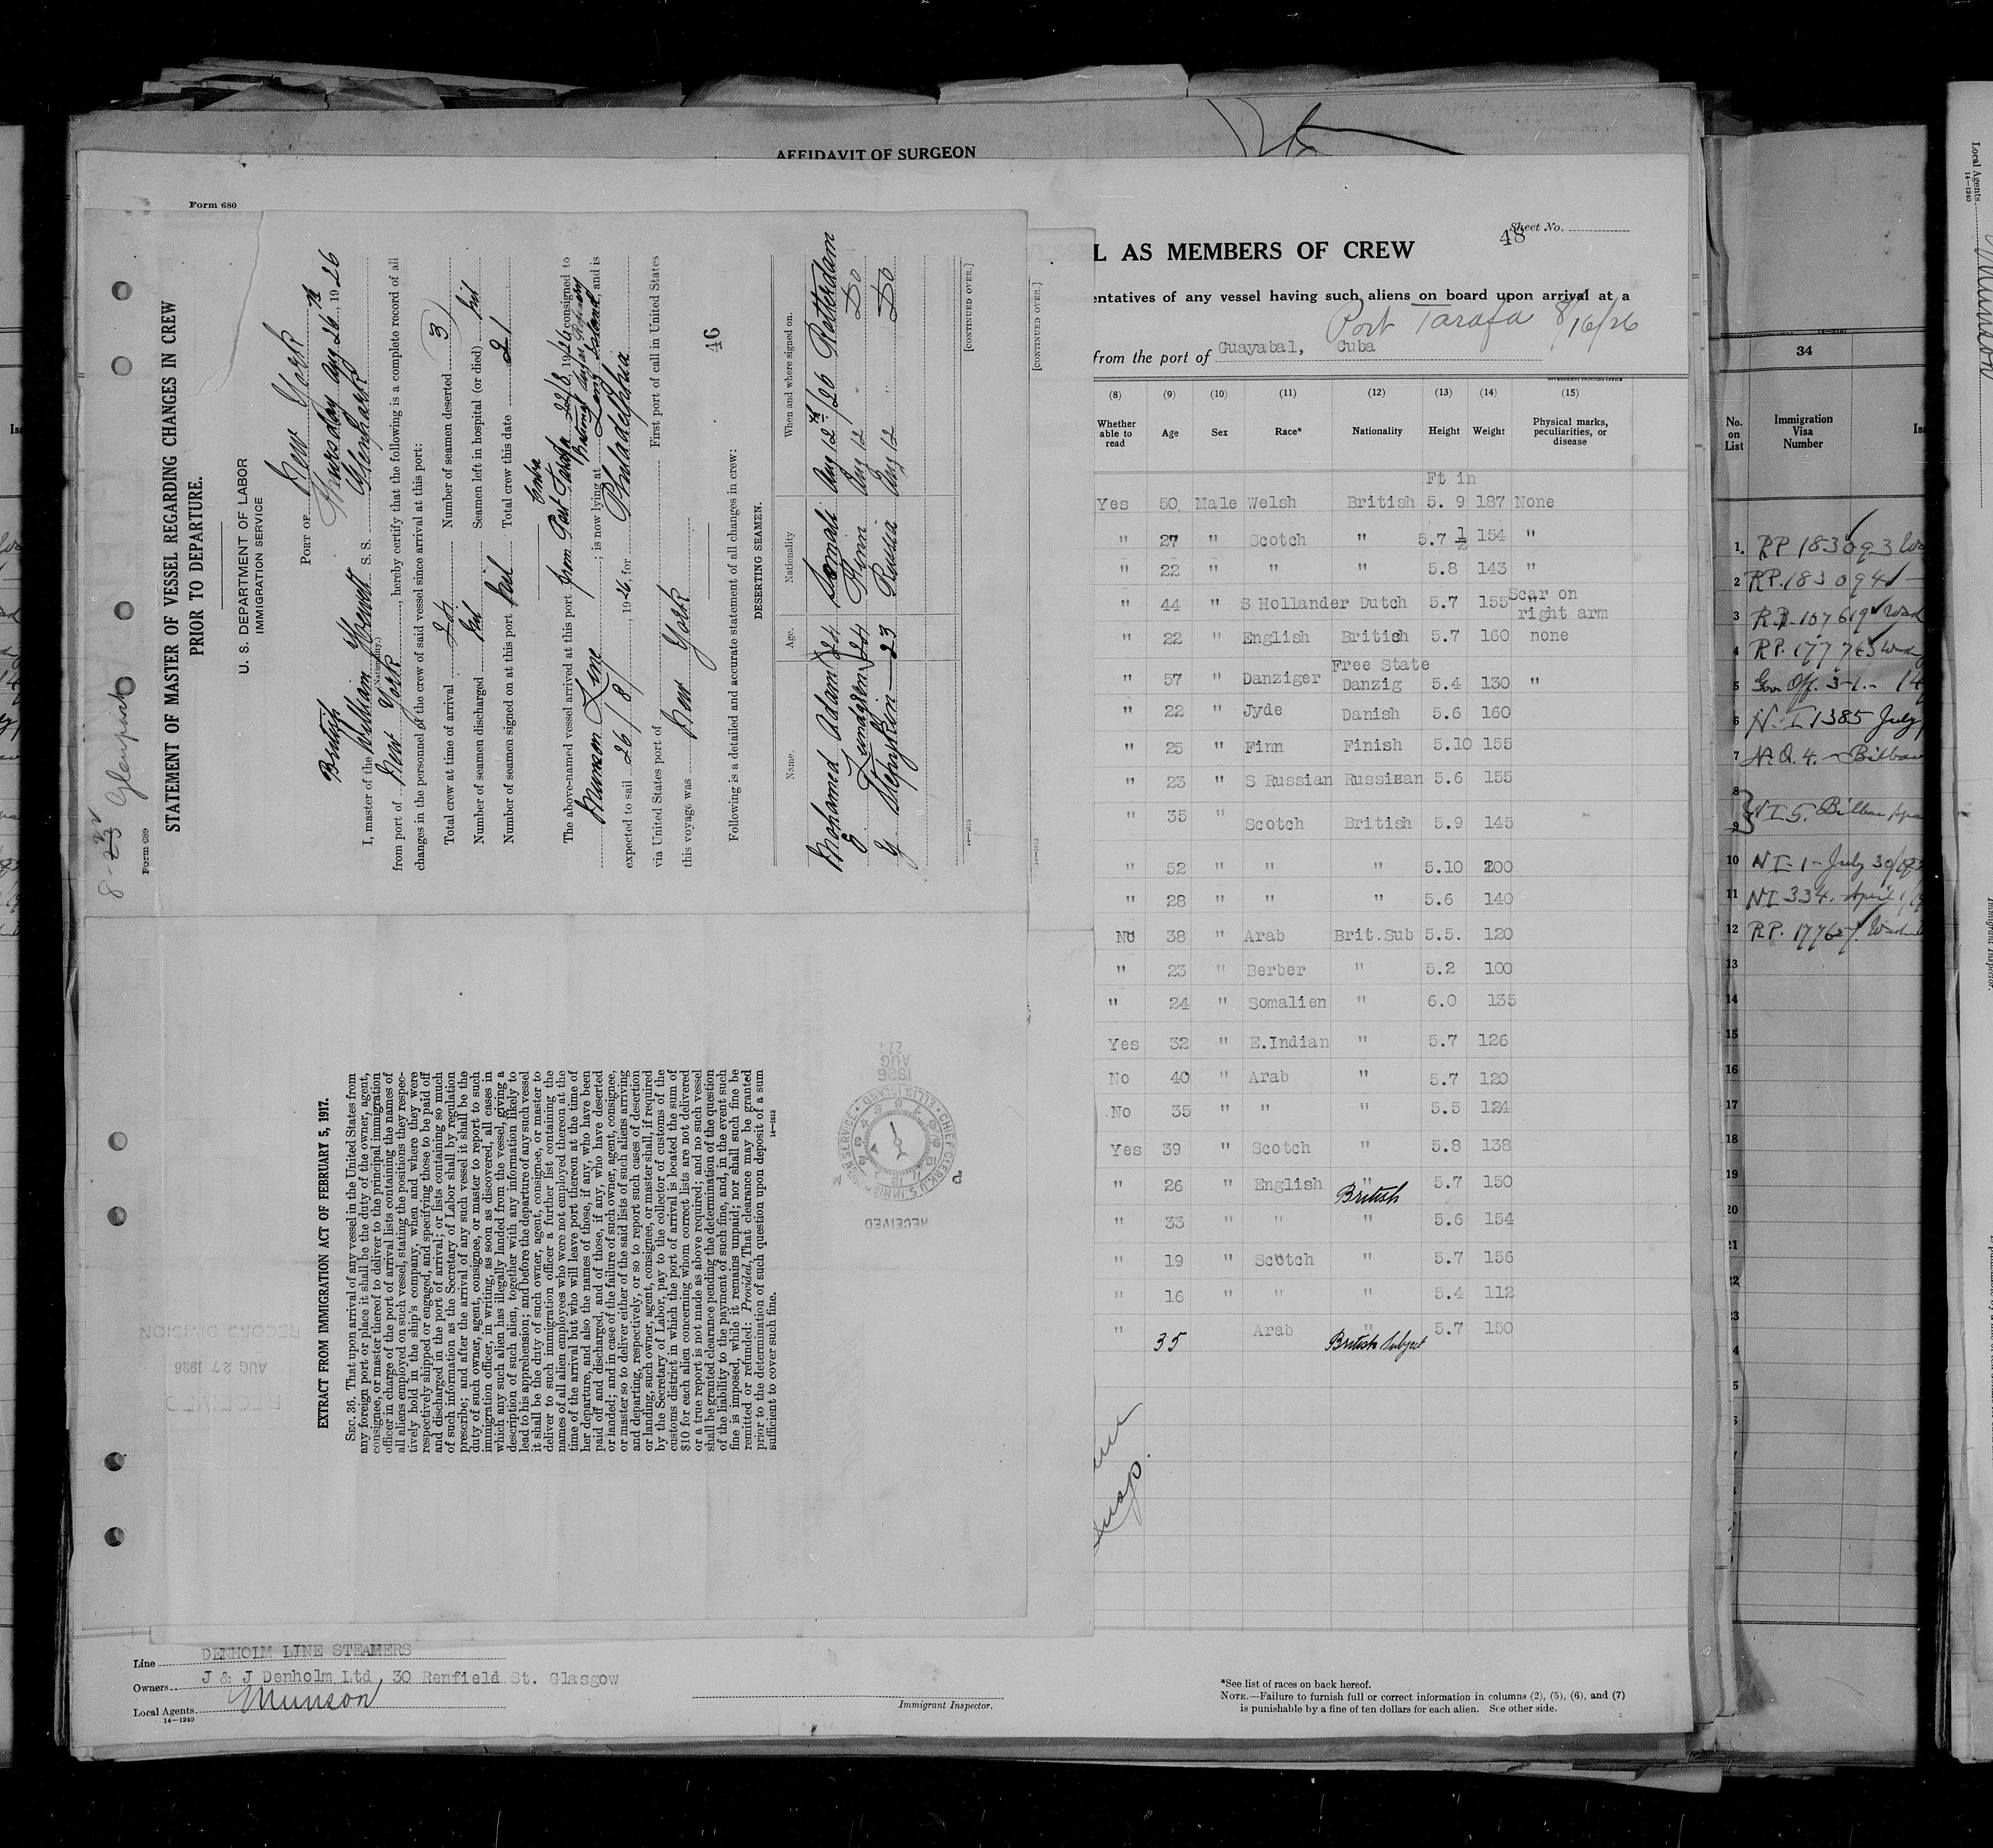 AFFIDAVIT OF SURGEON
Form 680
8-23 Glenpark
Form 689
STATEMENT OF MASTER OF VESSEL REGARDING CHANGES IN CREW
PRIOR TO DEPARTURE.
U. S. DEPARTMENT OF LABOR
IMMIGRATION SERVICE
PORT OF New York
Thursday Aug 26th, 1926
British
(Nationality.)
I, master of the William S. S. Glenpark
from port of New York, hereby certify that the following is a complete record of all
changes in the personnel of the crew of said vessel since arrival at this port:
Total crew at time of arrival 24 Number of seamen deserted 3
Number of seamen discharged nil Seamen left in hospital (or died) nil
Number of seamen signed on at this port nil Total crew this date 21
The above-named vessel arrived at this port from Port Tarafa Cuba 22/8, 1926, consigned to
Munson Line; is now lying at National Sugar Refinery Long Island, and is
expected to sail 26/8/, 1926, for Philadelphia
via United States port of First port of call in United States
this voyage was New York
46
Following is a detailed and accurate statement of all changes in crew:
DESERTING SEAMEN.
Name. Age. Nationality When and where signed on.
Mohamed Adam 24 Somali Aug 12th/26 Rotterdam
E Lundgren 24 Finn Aug 12 " Do
G Stepykin 23 Russia Aug 12 " Do
[CONTINUED OVER.]
[CONTINUED OVER.]
EXTRACT FROM IMMIGRATION ACT OF FEBRUARY 5, 1917.
SEC. 36. That upon arrival of any vessel in the United States from
any foreign port or place it shall be the duty of the owner, agent,
consignee, or master thereof to deliver to the principal immigration
officer in charge of the port of arrival lists containing the names of
all aliens employed on such vessel, stating the positions they respec-
tively hold in the ship's company, when and where they were
respectively shipped or engaged, and specifying those to be paid off
and discharged in the port of arrival; or lists containing so much
of such information as the Secretary of Labor shall by regulation
prescribe; and after the arrival of any such vessel it shall be the
duty of such owner, agent, consignee, or master to report to such
immigration officer, in writing, as soon as discovered, all cases in
which any such alien has illegally landed from the vessel, giving a
description of such alien, together with any information likely to
lead to his apprehension; and before the departure of any such vessel
it shall be the duty of such owner, agent, consignee, or master to
deliver to such immigration officer a further list containing the
names of all alien employees who were not employed thereon at the
time of the arrival but who will leave port thereon at the time of
her departure, and also the names of those, if any, who have been
paid off and discharged, and of those, if any, who have deserted
or landed; and in case of the failure of such owner, agent, consignee,
or master so to deliver either of the said lists of such aliens arriving
and departing, respectively, or so to report such cases of desertion
or landing, such owner, agent, consignee, or master shall, if required
by the Secretary of Labor, pay to the collector of customs of the
customs district in which the port of arrival is located the sum of
$10 for each alien concerning whom correct lists are not delivered
or a true report is not made as above required; and no such vessel
shall be granted clearance pending the determination of the question
of the liability to the payment of such fine, and, in the event such
fine is imposed, while it remains unpaid; nor shall such fine be
remitted or refunded: Provided, That clearance may be granted
prior to the determination of such question upon deposit of a sum
sufficient to cover such fine.
RECEIVED
AUG 27 1926
RECORD DIVISION
RECEIVED
CHIEF CLERK, U.S. IMMIGRATION SERVICE ELLIS ISLAND
1926
AUG
27
Line DENHOLM LINE STEAMERS
Owners J & J Denholm Ltd, 30 Renfield St. Glasgow
Local Agents Munson
14—1240
Immigrant Inspector.
Sheet No.
48
L AS MEMBERS OF CREW
entatives of any vessel having such aliens on board upon arrival at a
Port Tarafa 8/16/26
from the port of Guayabal, Cuba
(8) (9) (10) (11) (12) (13) (14) (15)
Whether able to read Age Sex Race* Nationality Height Weight Physical marks, peculiarities, or disease
Ft in
Yes 50 Male Welsh British 5. 9 187 None
" 27 " Scotch " 5.7 1/2 154 "
" 22 " " " 5.8 143 "
" 44 " S Hollander Dutch 5.7 155 Scar on right arm
" 22 " English British 5.7 160 none
" 57 " Danziger Free State Danzig 5.4 130 "
" 22 " Jyde Danish 5.6 160
" 25 " Finn Finish 5.10 155
" 23 " S Russian Russian 5.6 155
" 35 " Scotch British 5.9 145
" 52 " " " 5.10 200
" 28 " " " 5.6 140
No 38 " Arab Brit.Sub 5.5. 120
" 23 " Berber " 5.2 100
" 24 " Somalien " 6.0 135
Yes 32 " E.Indian " 5.7 126
No 40 " Arab " 5.7 120
No 35 " " " 5.5 124
Yes 39 " Scotch " 5.8 138
" 26 " English " British 5.7 150
" 33 " " " 5.6 154
" 19 " Scotch " 5.7 156
" 16 " " " 5.4 112
" 35 Arab " British Subject 5.7 150
*See list of races on back hereof.
NOTE.—Failure to furnish full or correct information in columns (2), (5), (6), and (7)
is punishable by a fine of ten dollars for each alien. See other side.
34
No. on List Immigration Visa Number
1. RP 183093
2 RP. 183094
3 RP. 107619
4 RP. 177763
5 Gov. Off. 3-1.-
6 N.I 1385 July
7 N.Q. 4. - Bilbao
8
9 NI 5. Bilbao
10 NI-1-July 30
11 NI 334. April 1
12 RP. 17762
13
14
15
16
17
18
19
20
21
22
23
Local Agents
14—1240
Munson
Immigrant Inspector.